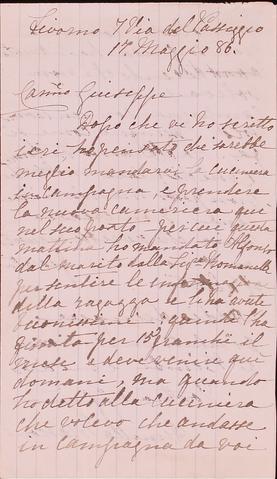 Livorno 7 Via del Passeggio
17. Maggio 86.
Carino Giuseppe
Dopo che vi ho scritto
ieri ho pensato che sarebbe
meglio mandarvi la cuciniera
in campagna, e prendere
la nuova cameriera qui
nel suo posto per cui questa
mattina ho mandato
dal marito della Sigra
per sentire le
della ragazza e li ha avute
buonissimi quindi l'ha
per 15 franchi il
mese e deve venire qui
domani, ma quando
ho detto alla cuciniera
che volevo che andasse
in campagna da voi